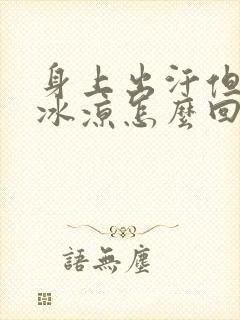 身上出汗但
冰凉怎麼回
語無塵